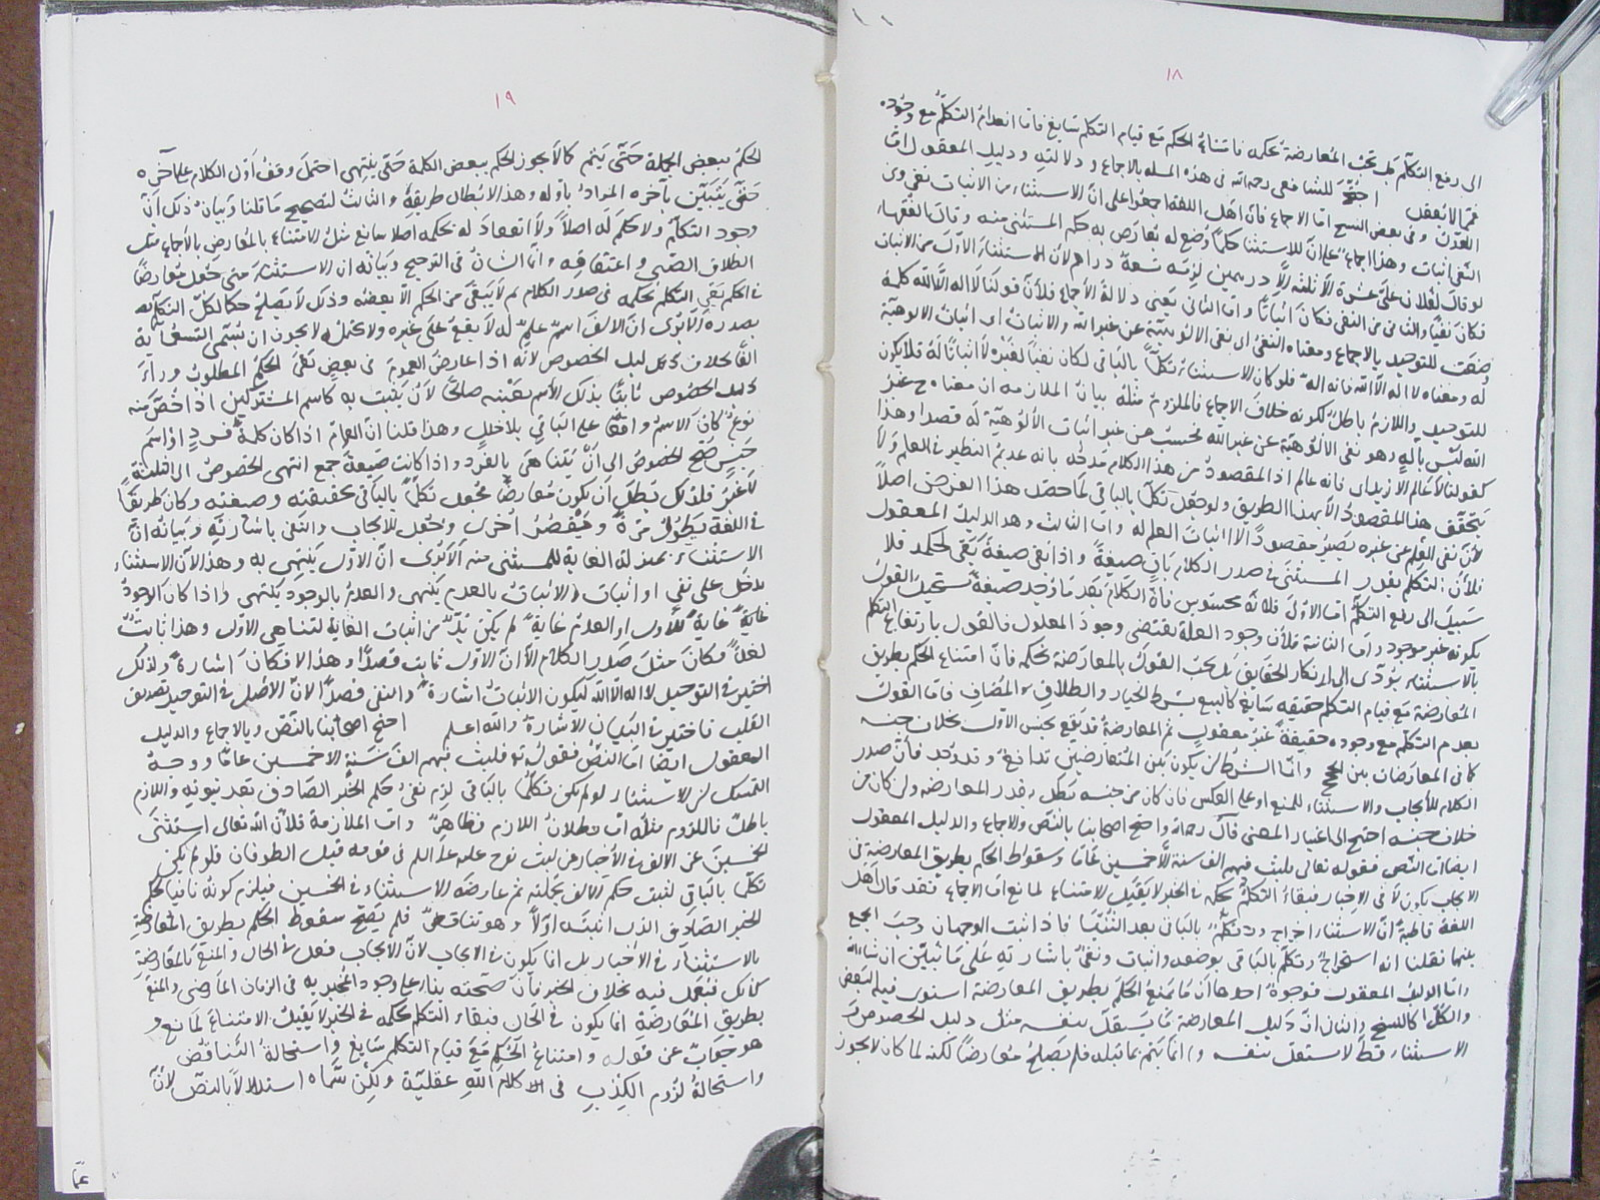 ١٨
الى رفع التكلم بل تحت المعارضة بحكمه فامتناع الحكم مع قيام التكلم سايغ فاما انعدام التكلم مع وجوده
فمما لا يعقل احتج للشافعى رحمه الله فى هذه المسئلة بالاجماع ودلالته ودليل المعقول اما
وفى بعض النسخ اما الاجماع فان اهل اللغة اجمعوا على ان الاستثناء من الاثبات نفى ومن
النفى اثبات وهذا اجماع على ان للاستثناء حكما وضع له يعارض به حكم المستثنى منه وقالت الفقهاء
لو قال لفلان على عشرة الا ثلثة الا درهمين لزمه تسعة دراهم لان الاستثناء الاول من الاثبات
فكان نفيا والثانى من النفى فكان اثباتا واما الثانى يعنى دلالة الاجماع فلان قولنا لا اله الا الله كلمة
وضعت للتوحيد بالاجماع ومعناه النفى اى نفى الالوهية عن غير الله والاثبات اى اثبات الالوهية
له ومعناه لا اله الا الله فانه اله فلو كان الاستثناء تكلما بالباقى لكان نفيا لغيره لا اثباتا له فلا يكون
للتوحيد واللازم باطل لكونه خلاف الاجماع فالملزوم مثله بيان الملازمة ان معناه ح غير
الله ليس باله وهو نفى الالوهية عن غير الله فحسب من غير اثبات الالوهية له قصدا وهذا
كقولنا لا عالم الا زيد اى فانه عالم اذ المقصود من هذا الكلام مدحه بانه عديم النظير فى العلم ولا
يتحقق هذا المقصود الا بهذا الطريق ولو جعل تكلما بالباقى لما حصل هذا الغرض اصلا
لان نفى العلم عن غيره يصير مقصودا لا اثبات العلم له واما الثالث وهو الدليل المعقول
فلان التكلم بقدر المستثنى فى صدر الكلام باق صيغة واذا بقى صيغة بقى لحكمه فلا
سبيل الى رفع التكلم اما الاول فلانه محسوس فان الكلام بعد ما وجد صيغة يستحيل القول
بكونه غير موجود واما الثانية فلان وجود العلة يقتضى وجود المعلول فالقول بارتفاع التكلم
بالاستثناء يؤدى الى انكار الحقايق بل يجب القول بالمعارضة بحكمه فان امتناع الحكم بطريق
المعارضة مع قيام التكلم حقيقة سايغ كالبيع بشرط الخيار والطلاق المضاف فاما القول
بعدم التكلم مع وجوده حقيقة غير معقول ثم المعارضة قد يقع بجنس الاول بخلاف جنسه
كما فى المعارضات بين الحجج وانما الشرط ان يكون بين المتعارضين تدافع وقد وجد فان صدر
الكلام للايجاب والاستثناء للمنع او على العكس فان كان من جنسه بطل بقدر المعارضة وان كان من
خلاف جنسه احتيج الى اعتبار المعنى قال رحمه الله واحتج اصحابنا بالنص والاجماع والدليل المعقول
ايضا اما النص فقوله تعالى فلبث فيهم الف سنة الا خمسين عاما وسقوط الحكم بطريق المعارضة فى
الايجاب يكون لا فى الاخبار فبقاء التكلم بحكمه فى الخبر لا يقبل الامتناع لمانع اما الاجماع فقد قال اهل
اللغة قاطبة ان الاستثناء اخراج وتكلم بالباقى بعد الثنيا فاذا ثبت الوجهان وجب الجمع
بينهما فقلنا انه استخراج وتكلم بالباقى بوضعه واثبات ونفى باشارته على ما نبين ان شاء الله
واما الدليل المعقول فوجوه احدها ان ما يمنع الحكم بطريق المعارضة استوى فيه البعض
والكل كالنسخ والثانى ان دليل المعارضة ما يستقل بنفسه مثل دليل الخصوص و
الاستثناء قط لا يستقل بنفسه وانما يتم بما قبله فلم يصلح معارضا لكنه لما كان لا يجوز
١٩
الحكم ببعض الجملة حتى يتم كما لا يجوز الحكم ببعض الكلمة حتى ينتهى احتمل وقف اول الكلام على آخره
حتى يتبين بآخره المراد باوله وهذا الابطال طريقة والثالث لتصحيح ما قلنا وبيان ذلك ان
وجود التكلم ولا حكم له اصلا ولا انعقاد له بحكمه اصلا سايغ مثل الامتناع بالمعارض بالاجماع مثل
الطلاق الصبى واعتقاقه وانما الشان فى الترجيح وبيانه ان الاستثناء متى جعل معارضا
فى الحكم بقى التكلم بحكمه فى صدر الكلام ثم لا يبقى من الحكم الا بعضه وذلك لا يصلح حكما لكل التكلم
بصدره الا ترى ان الالف اسم علم له لا يقع على غيره ولا يحتمله لا يجوز ان تسمى التسعمائة
الفا بخلاف دليل الخصوص لانه اذا عارض العموم فى بعض بقى الحكم المطلوب وراء
دليل الخصوص ثابتا بذلك الاسم بعينه صالحا لان يثبت به كاسم المشركين اذا خص منه
نوع كان الاسم واقعا على الباقى بلا خلل وهذا قلنا ان العام اذا كان كلمة فرد او اسم
جنس صح الخصوص الى ان يتناهى بالفرد واذا كانت صيغة جمع انتهى الخصوص الى الثلثة
لا غير فلذلك بطل ان يكون معارضا فجعل تكلما بالباقى بحقيقته وصيغته وكان طريقا
فى اللغة يطول مرة ويقصر اخرى وجعل للايجاب والنفى باشارته وبيانه ان
الاستثناء بمنزلة الغاية للمستثنى منه الا ترى ان الاول ينتهى به وهذا لان الاستثناء
يدخل على نفى او اثبات والاثبات بالعدم ينتهى والعدم بالوجود ينتهى واذا كان الوجود
غاية للاول او العدم غاية لم يكن بد من اثبات الغاية لتناهى الاول وهذا ثابت
لغة فكان مثل صدر الكلام الا ان الاول ثابت قصدا وهذا لا فكان اشارة ولذلك
اختير فى التوحيد لا اله الا الله ليكون الاثبات اشارة والنفى قصدا لان الاصل فى التوحيد تصديق
القلب فاختير فى البيان الاشارة والله اعلم احتج اصحابنا بالنص وبالاجماع والدليل
المعقول ايضا اما النص فقوله تع فلبث فيهم الف سنة الا خمسين عاما ووجه
التمسك ان الاستثناء لو لم يكن تكلما بالباقى لزم نفى حكم الخبر الصادق بعد ثبوته واللازم
باطل فالملزوم مثله اما بطلان اللازم فظاهر واما الملازمة فلان الله تعالى استثنى
الخمسين عن الالف فى الاخبار عن لبث نوح عليه السلم فى قومه قبل الطوفان فلو لم يكن
تكلما بالباقى لثبت حكم الالف بجملته ثم عارضه الاستثناء فى الخمسين فيلزم كونه نافيا لحكم
الخبر الصادق الذى اثبته اولا وهو تناقض فلم يصح سقوط الحكم بطريق المعارضة
بالاستثناء فى الاخبار بل انما يكون فى الايجاب لان الايجاب فعل فى الحال والمنع بالمعارضة
كذلك فيعمل فيه بخلاف الخبر فان صحته بناء على وجود المخبر به فى الزمان الماضى والمنع
بطريق المعارضة انما يكون فى الحال فبقاء التكلم بحكمه فى الخبر لا يقبل الامتناع لمانع و
هو جواب عن قوله وامتناع الحكم مع قيام التكلم سايغ واستحالة التناقض
واستحالة لزوم الكذب فى كلام الله عقلية ولكن سماه استدلالا بالنص لانه
عما